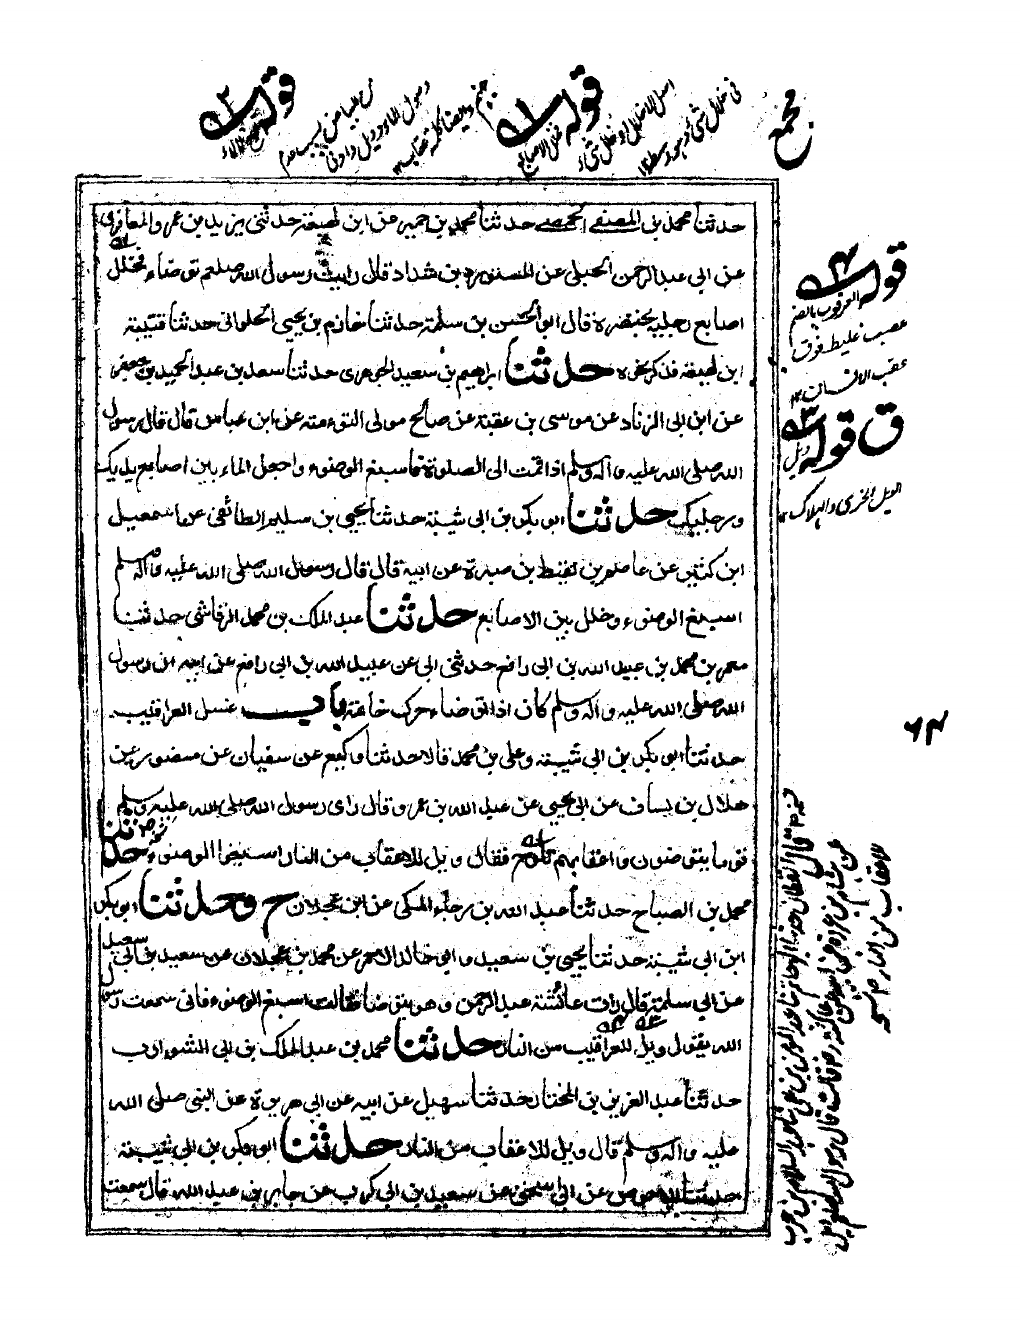 قوله
قوله
مجمع
حدثنا محمد بن المصفى الحمصي حدثنا محمد بن حمير عن ابن لهيعة حدثني يزيد بن عمرو المعافري
عن ابي عبد الرحمن الحبلي عن المستورد بن شداد قال رايت رسول الله صلعم توضاء فخلل
اصابع رجليه بخنصره قال ابو الحسن بن سلمة حدثنا خازم بن يحيى الحلواني حدثنا قتيبة
ابن لهيعة فذكر نحوه حدثنا ابراهيم بن سعيد الجوهري حدثنا سعد بن عبد الحميد بن جعفر
عن ابن ابى الزناد عن موسى بن عقبة عن صالح مولى التوءمة عن ابن عباس قال قال رسول
الله صلى الله عليه واله وسلم اذا قمت الى الصلوة فاسبغ الوضوء واجعل الماء بين اصابع يديك
ورجليك حدثنا ابو بكر بن ابى شيبة حدثنا يحيى بن سليم الطائفي عن اسمعيل
ابن كثير عن عاصم بن لقيط بن صبرة عن ابيه قال قال رسول الله صلى الله عليه واله وسلم
اسبغ الوضوء وخلل بين الاصابع حدثنا عبد الملك بن محمد الرقاشى حدثنا
معمر بن محمد بن عبيد الله بن ابى رافع حدثنى ابى عن عبيد الله بن ابى رافع عن ابيه ان رسول
الله صلى الله عليه واله وسلم كان اذا توضاء حرك خاتمه باب غسل العراقيب
حدثنا ابو بكر بن ابى شيبة وعلى بن محمد قالا حدثنا وكيع عن سفيان عن منصور عن
هلال بن يساف عن ابى يحيى عن عبد الله بن عمرو قال راى رسول الله صلى الله عليه وسلم
قوما يتوضئون واعقابهم تلوح فقال ويل للاعقاب من النار اسبغوا الوضوء حدثنا
محمد بن الصباح حدثنا عبد الله بن رجاء المكى عن ابن عجلان ح وحدثنا ابو بكر
ابن ابى شيبة حدثنا يحيى بن سعيد وابو خالد الاحمر عن محمد بن عجلان عن سعيد بن ابى سعيد
عن ابي سلمة قال رات عائشة عبد الرحمن وهو يتوضا فقالت اسبغ الوضوء فانى سمعت رسول
الله يقول ويل للعراقيب من النار حدثنا محمد بن عبد الملك بن ابى الشوارب
حدثنا عبد العزيز بن المختار حدثنا سهيل عن ابيه عن ابى هريرة عن النبى صلى الله
عليه واله وسلم قال ويل للاعقاب من النار حدثنا ابو بكر بن ابى شيبة
حدثنا ابو الاحوص عن ابى اسحق عن سعيد بن ابى كرب عن جابر بن عبد الله قال سمعت
قوله
العرقوب بالضم
عصب غليظ فوق
عقب الانسان
ق قوله ويل
الويل الخزى والهلاك
۶۲
للاعقاب من النار